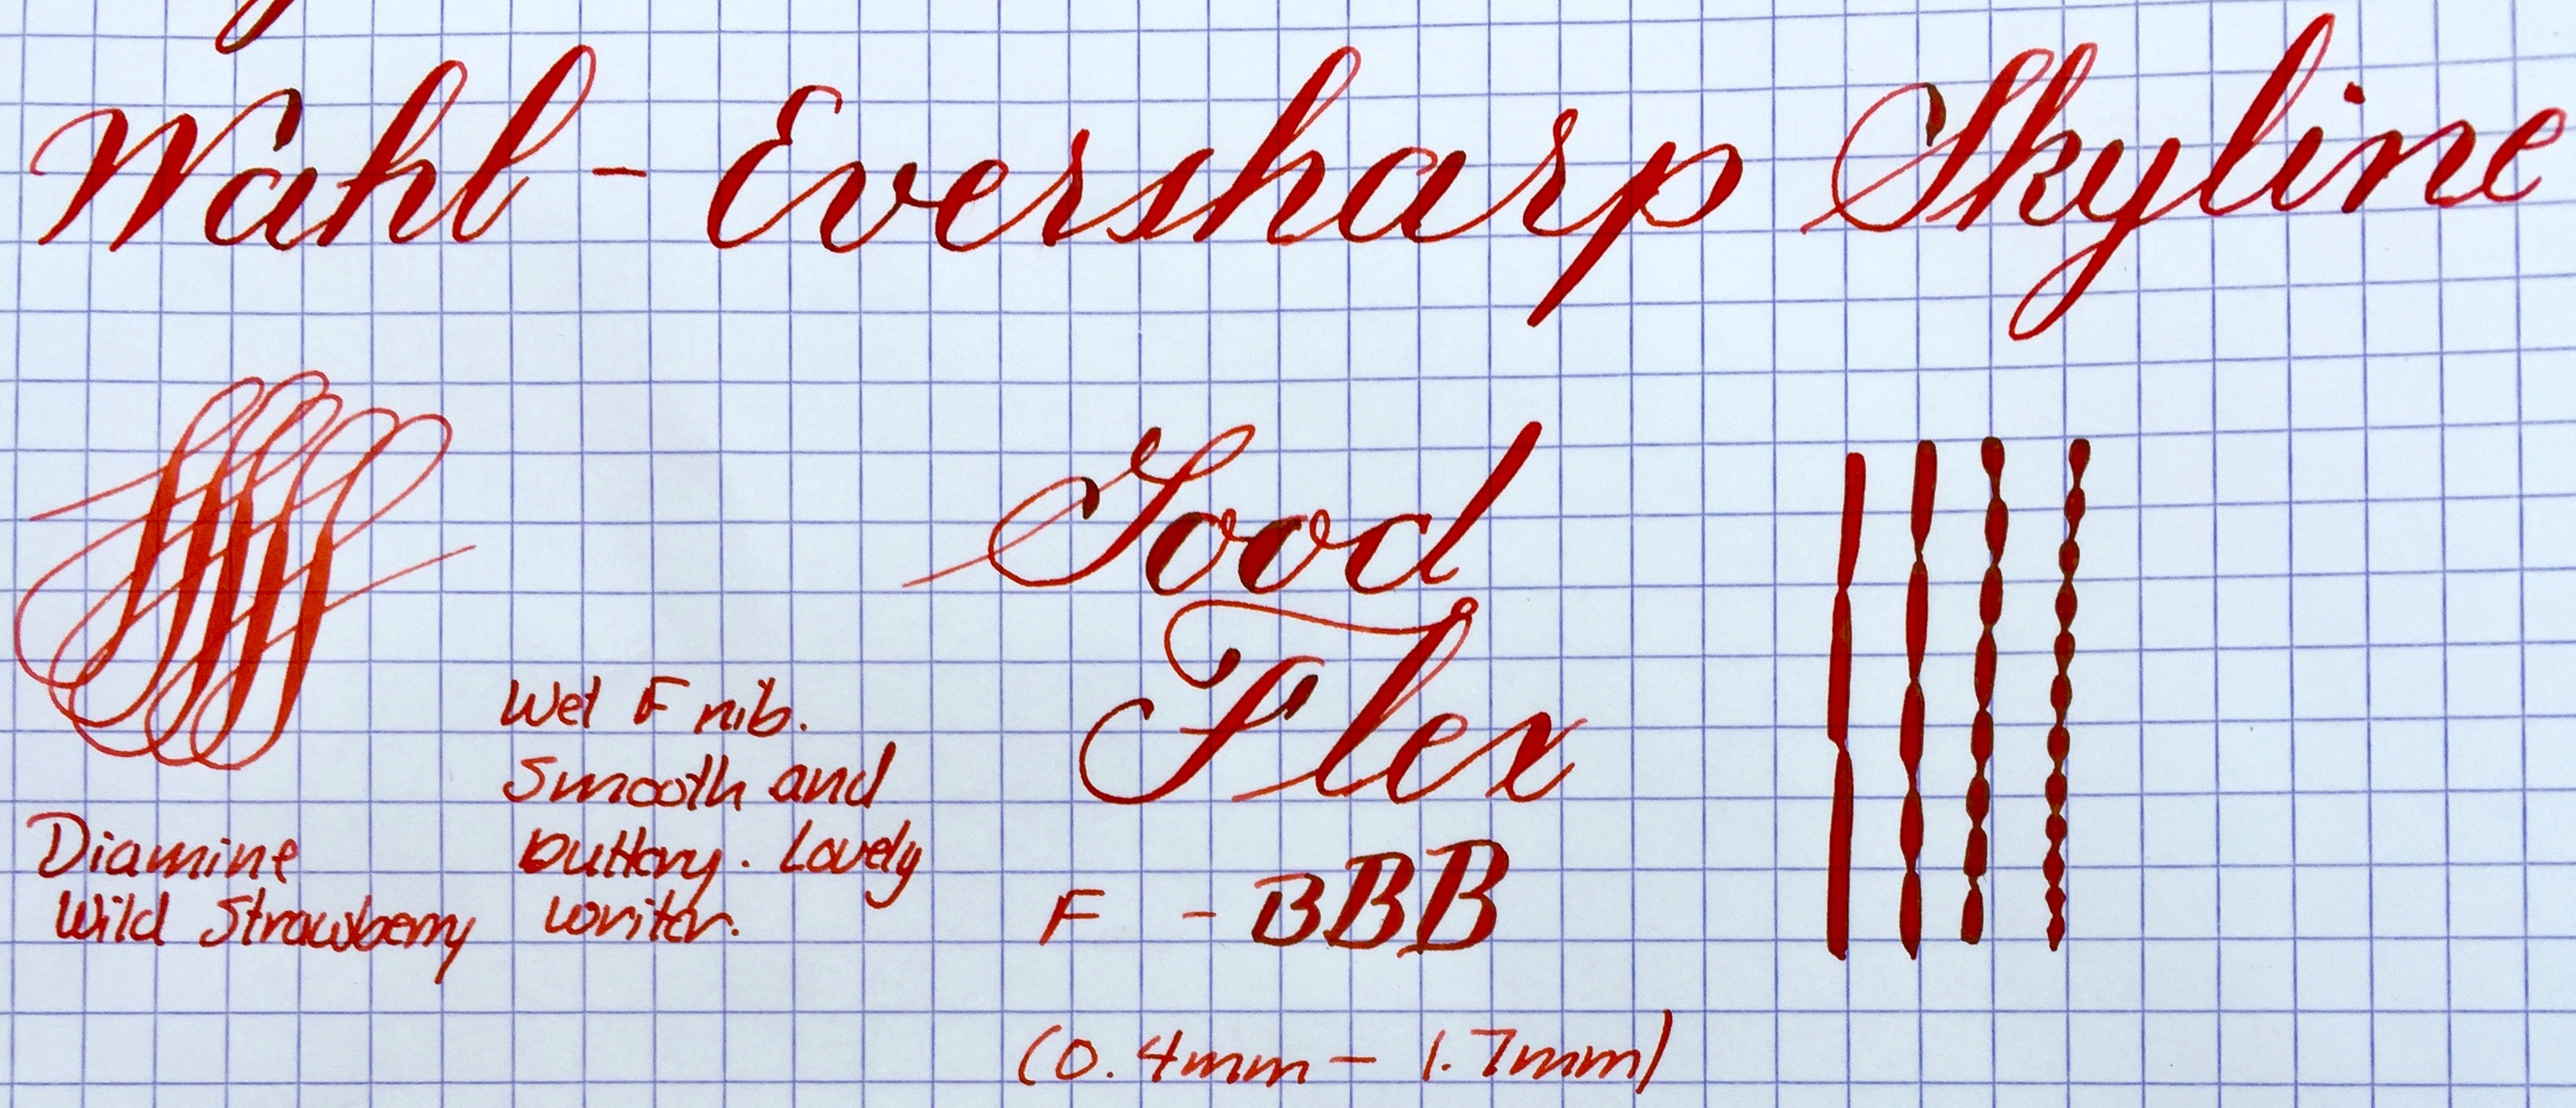 Wahl - Eversharp Skyline
Good
Flex
Wet F nib.
Smooth and
buttery. Lovely
writer.
Diamine
Wild Strawberry
F - BBB
(0.4mm - 1.7mm)